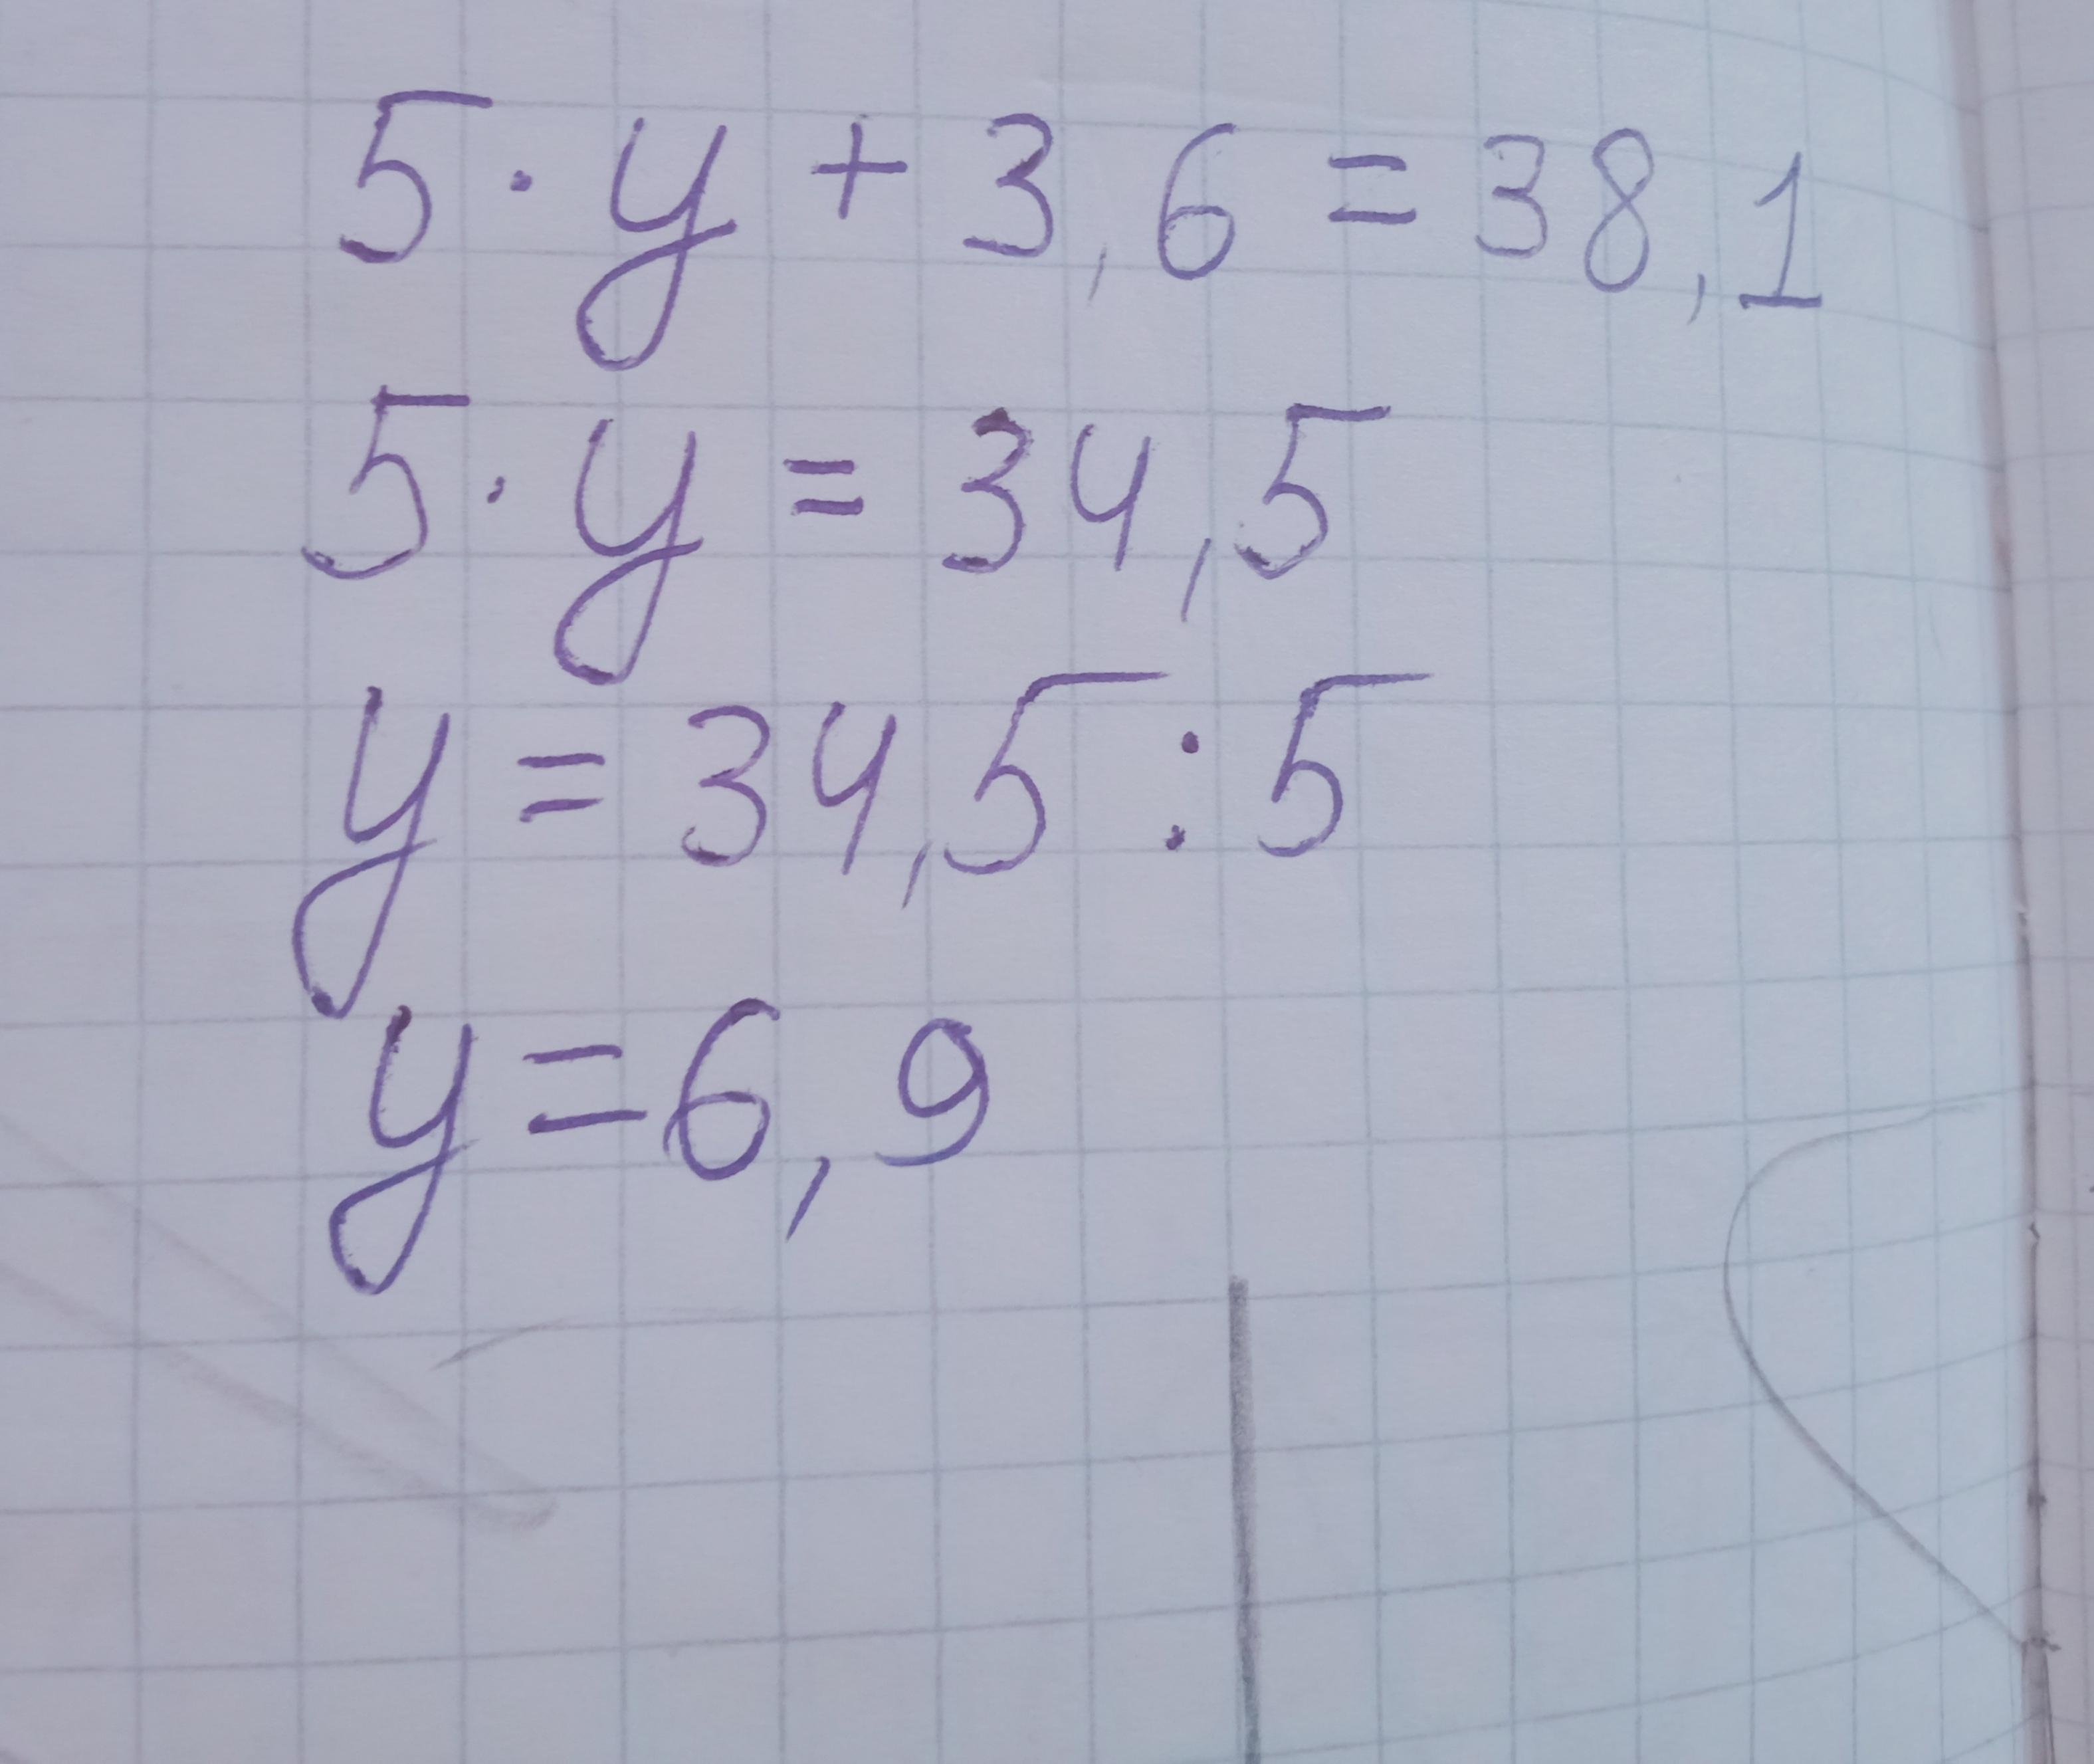 5 · y + 3,6 = 38,1
5 · y = 34,5
y = 34,5 : 5
y = 6,9